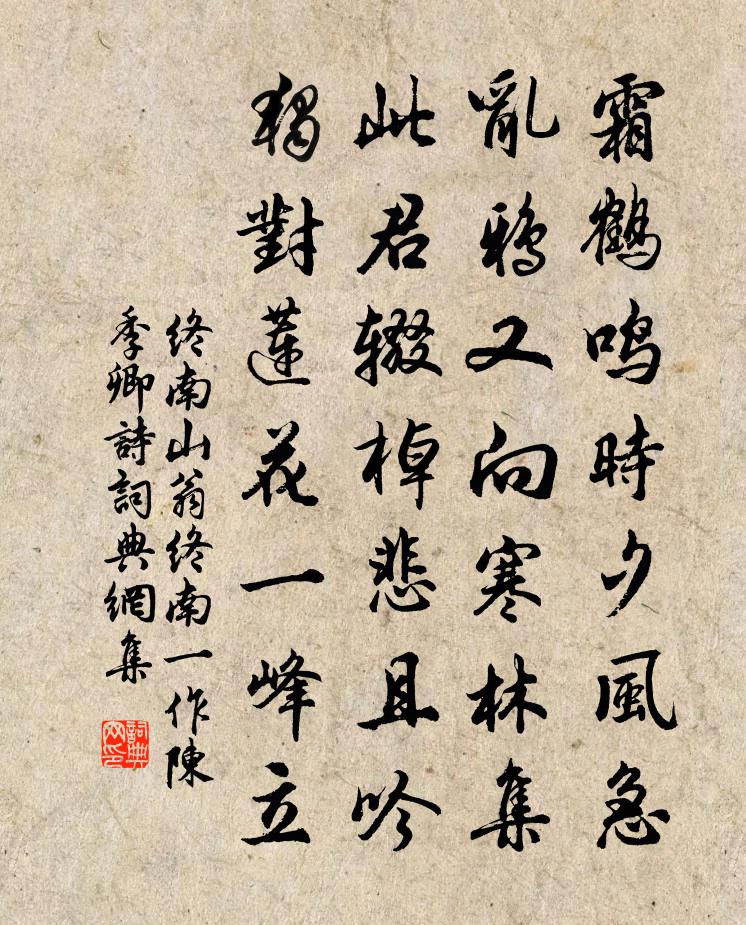 霜鶴鳴時夕風急
亂鴉又向寒林集
此君輟棹悲且吟
獨對蓮花一峰立
終南山翁終南一作陳
季卿詩詞典網集
詞典網印